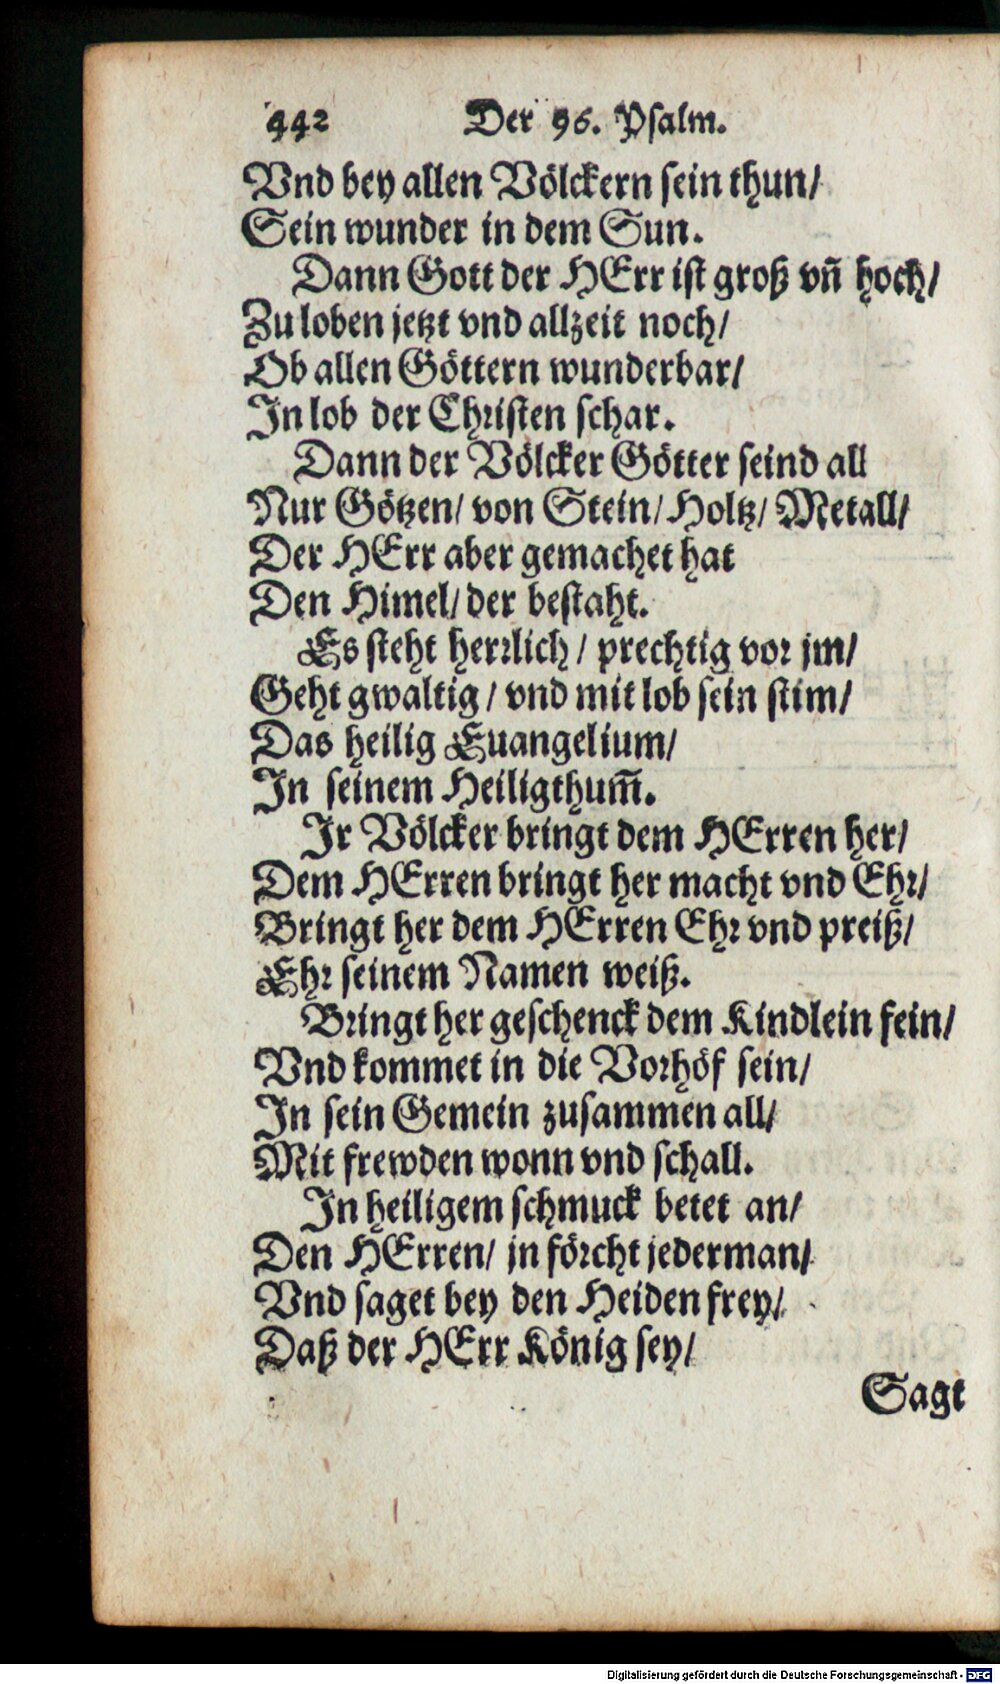 442 Der 96. Psalm.
Vnd bey allen Völckern sein thun/
Sein wunder in dem Sun.
Dann Gott der HErr ist groß vñ hoch/
Zu loben jetzt vnd allzeit noch/
Ob allen Göttern wunderbar/
In lob der Christen schar.
Dann der Völcker Götter seind all
Nur Götzen/ von Stein/ Holtz/ Metall/
Der HErr aber gemachet hat
Den Himel/ der bestaht.
Es steht herrlich/ prechtig vor jm/
Geht gwaltig/ vnd mit lob sein stim/
Das heilig Euangelium/
In seinem Heiligthum̃.
Ir Völcker bringt dem HErren her/
Dem HErren bringt her macht vnd Ehr/
Bringt her dem HErren Ehr vnd preiß/
Ehr seinem Namen weiß.
Bringt her geschenck dem Kindlein fein/
Vnd kommet in die Vorhöf sein/
In sein Gemein zusammen all/
Mit frewden wonn vnd schall.
In heiligem schmuck betet an/
Den HErren/ jn förcht jederman/
Vnd saget bey den Heiden frey/
Daß der HErr König sey/
Sagt
Digitalisierung gefördert durch die Deutsche Forschungsgemeinschaft - DFG